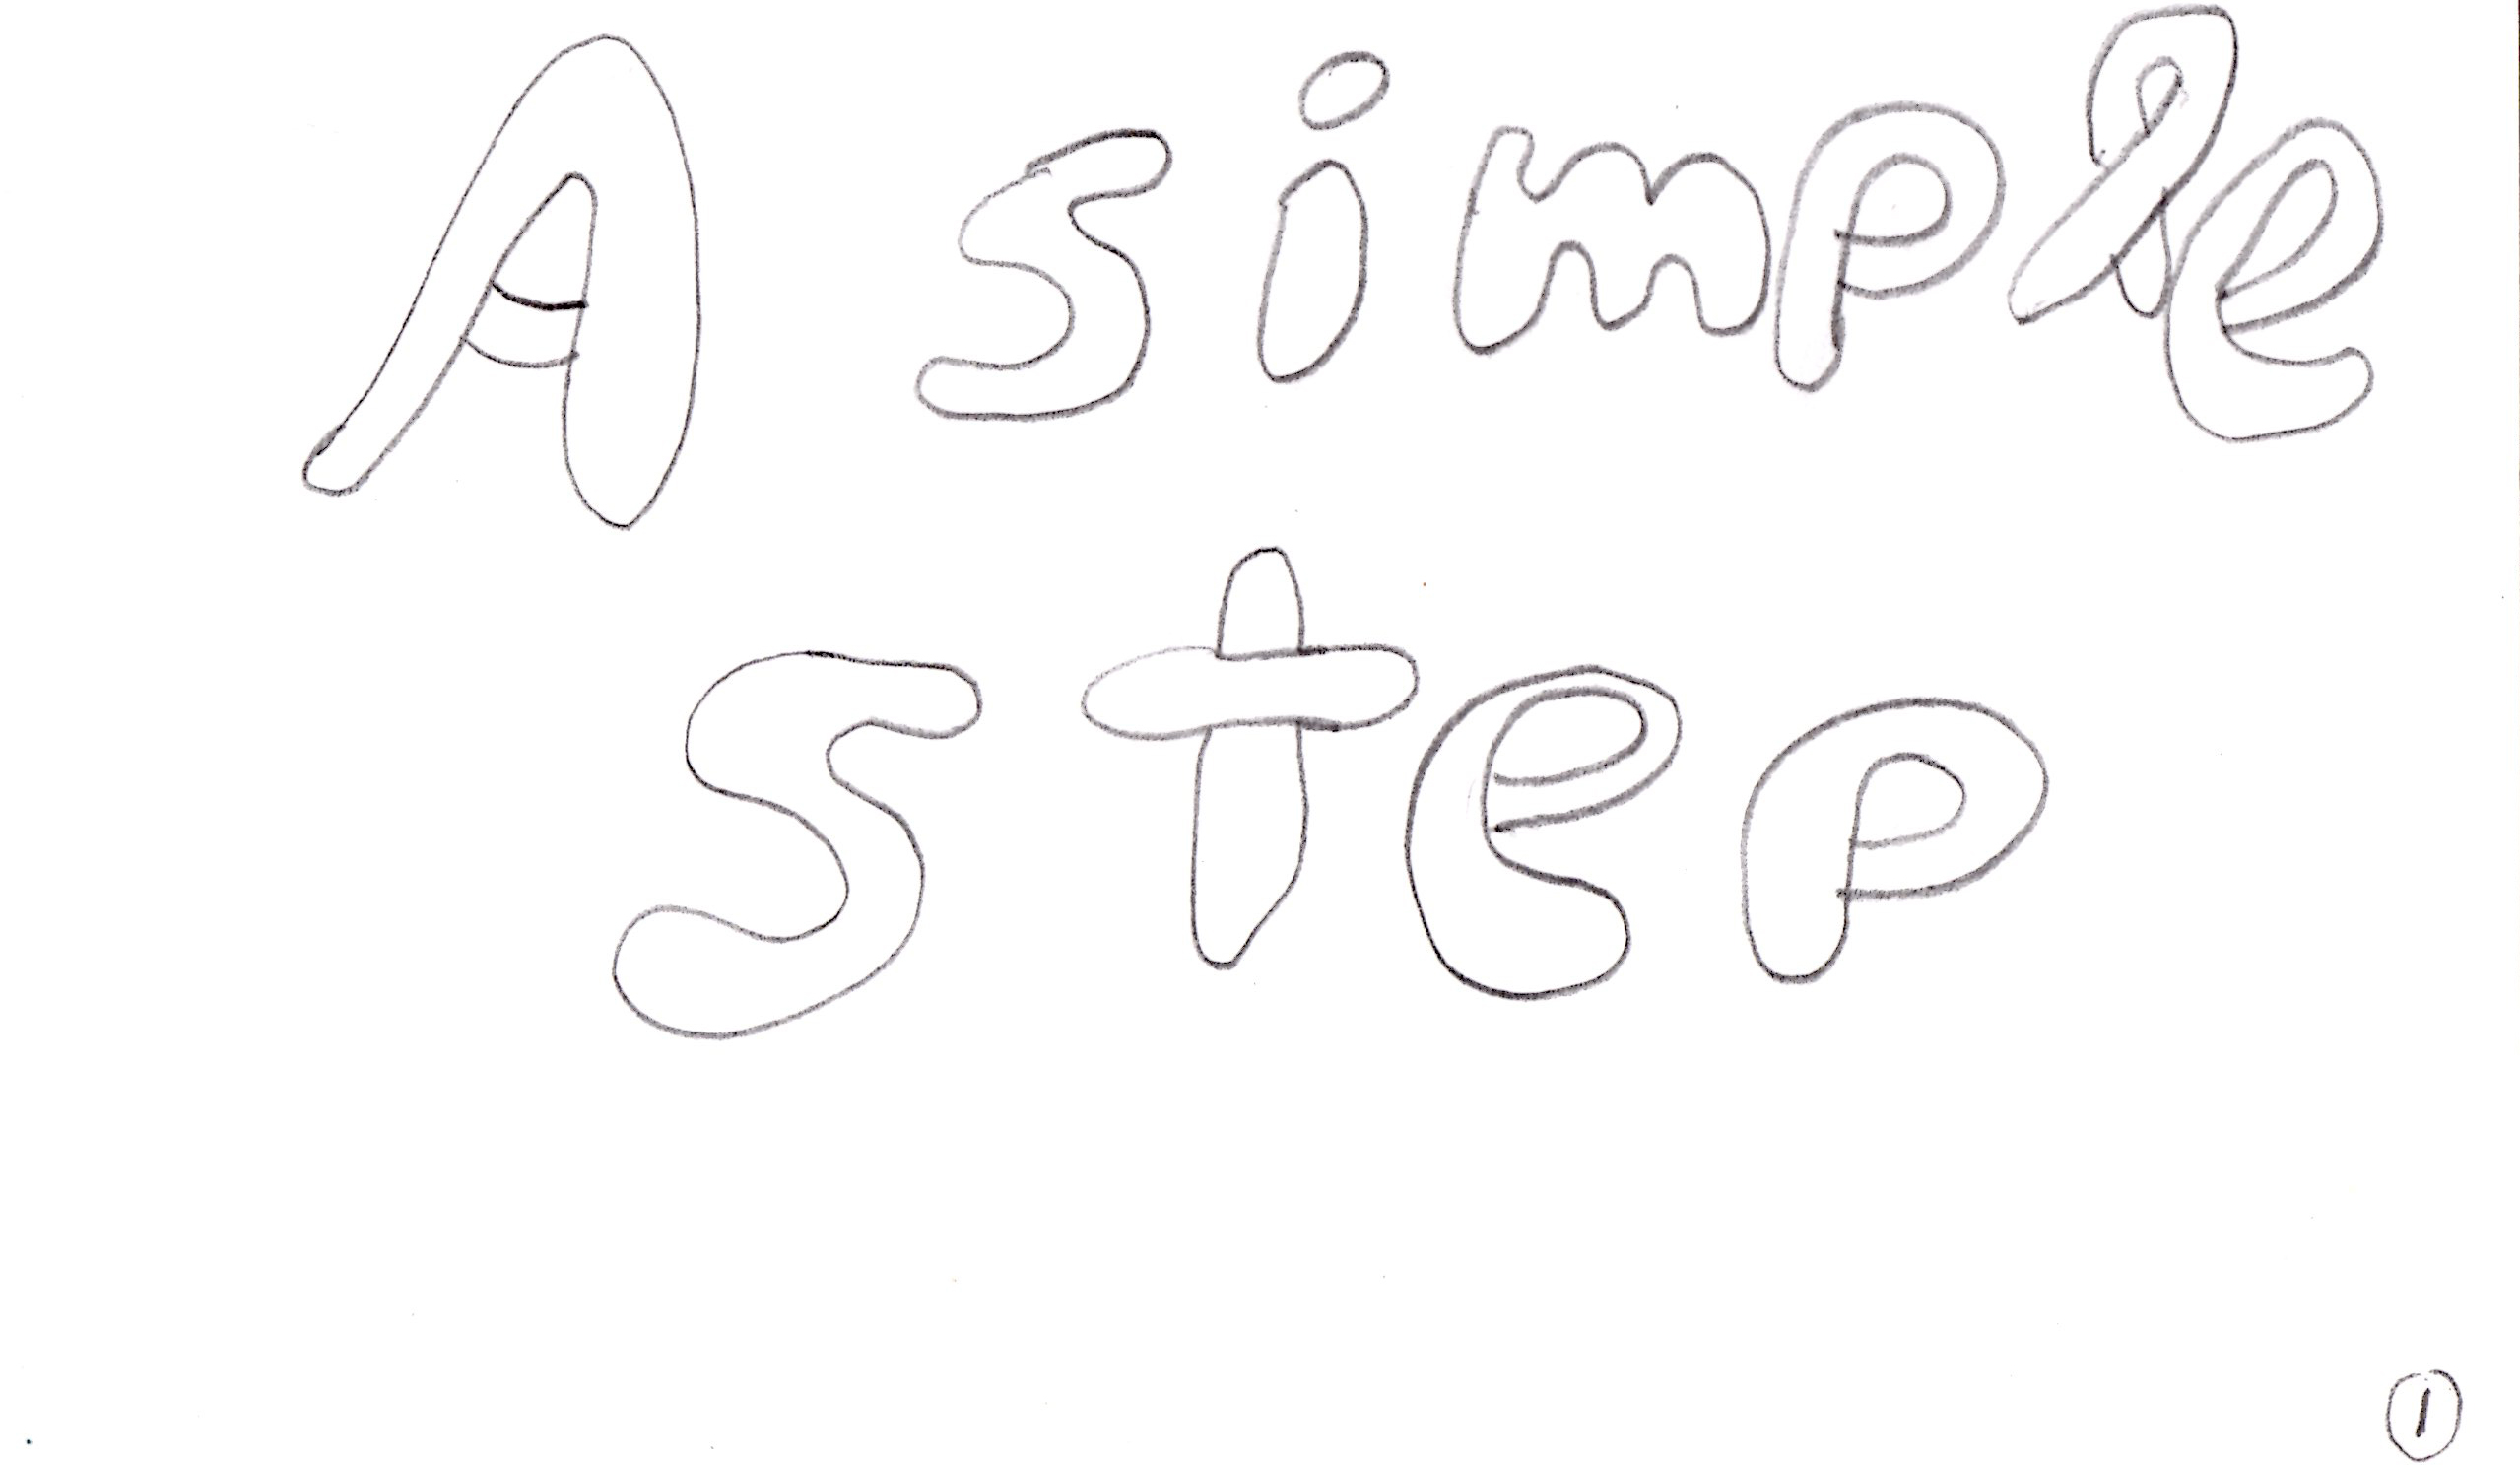 A simple
step
1